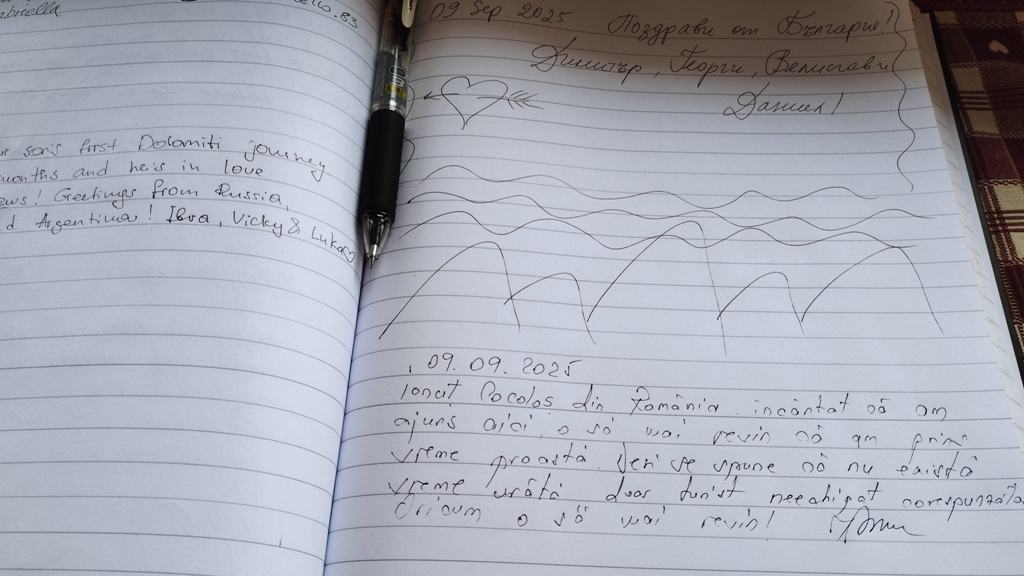 llo.83
sons first Dolomiti journey
months and he is in love
Greetings from Russia,
Argentina! Ibra, Vicky & Luka
09 Sep. 2025
Поздрави от България!
Димитър, Георги, Велислав и
Даниел!
09.09.2025
din România incântat că am
ajuns aici, o să mai revin că am prins
vreme proastă. Deși se spune că nu există
vreme urâtă doar turist neechipat
Oricum o să mai revin!